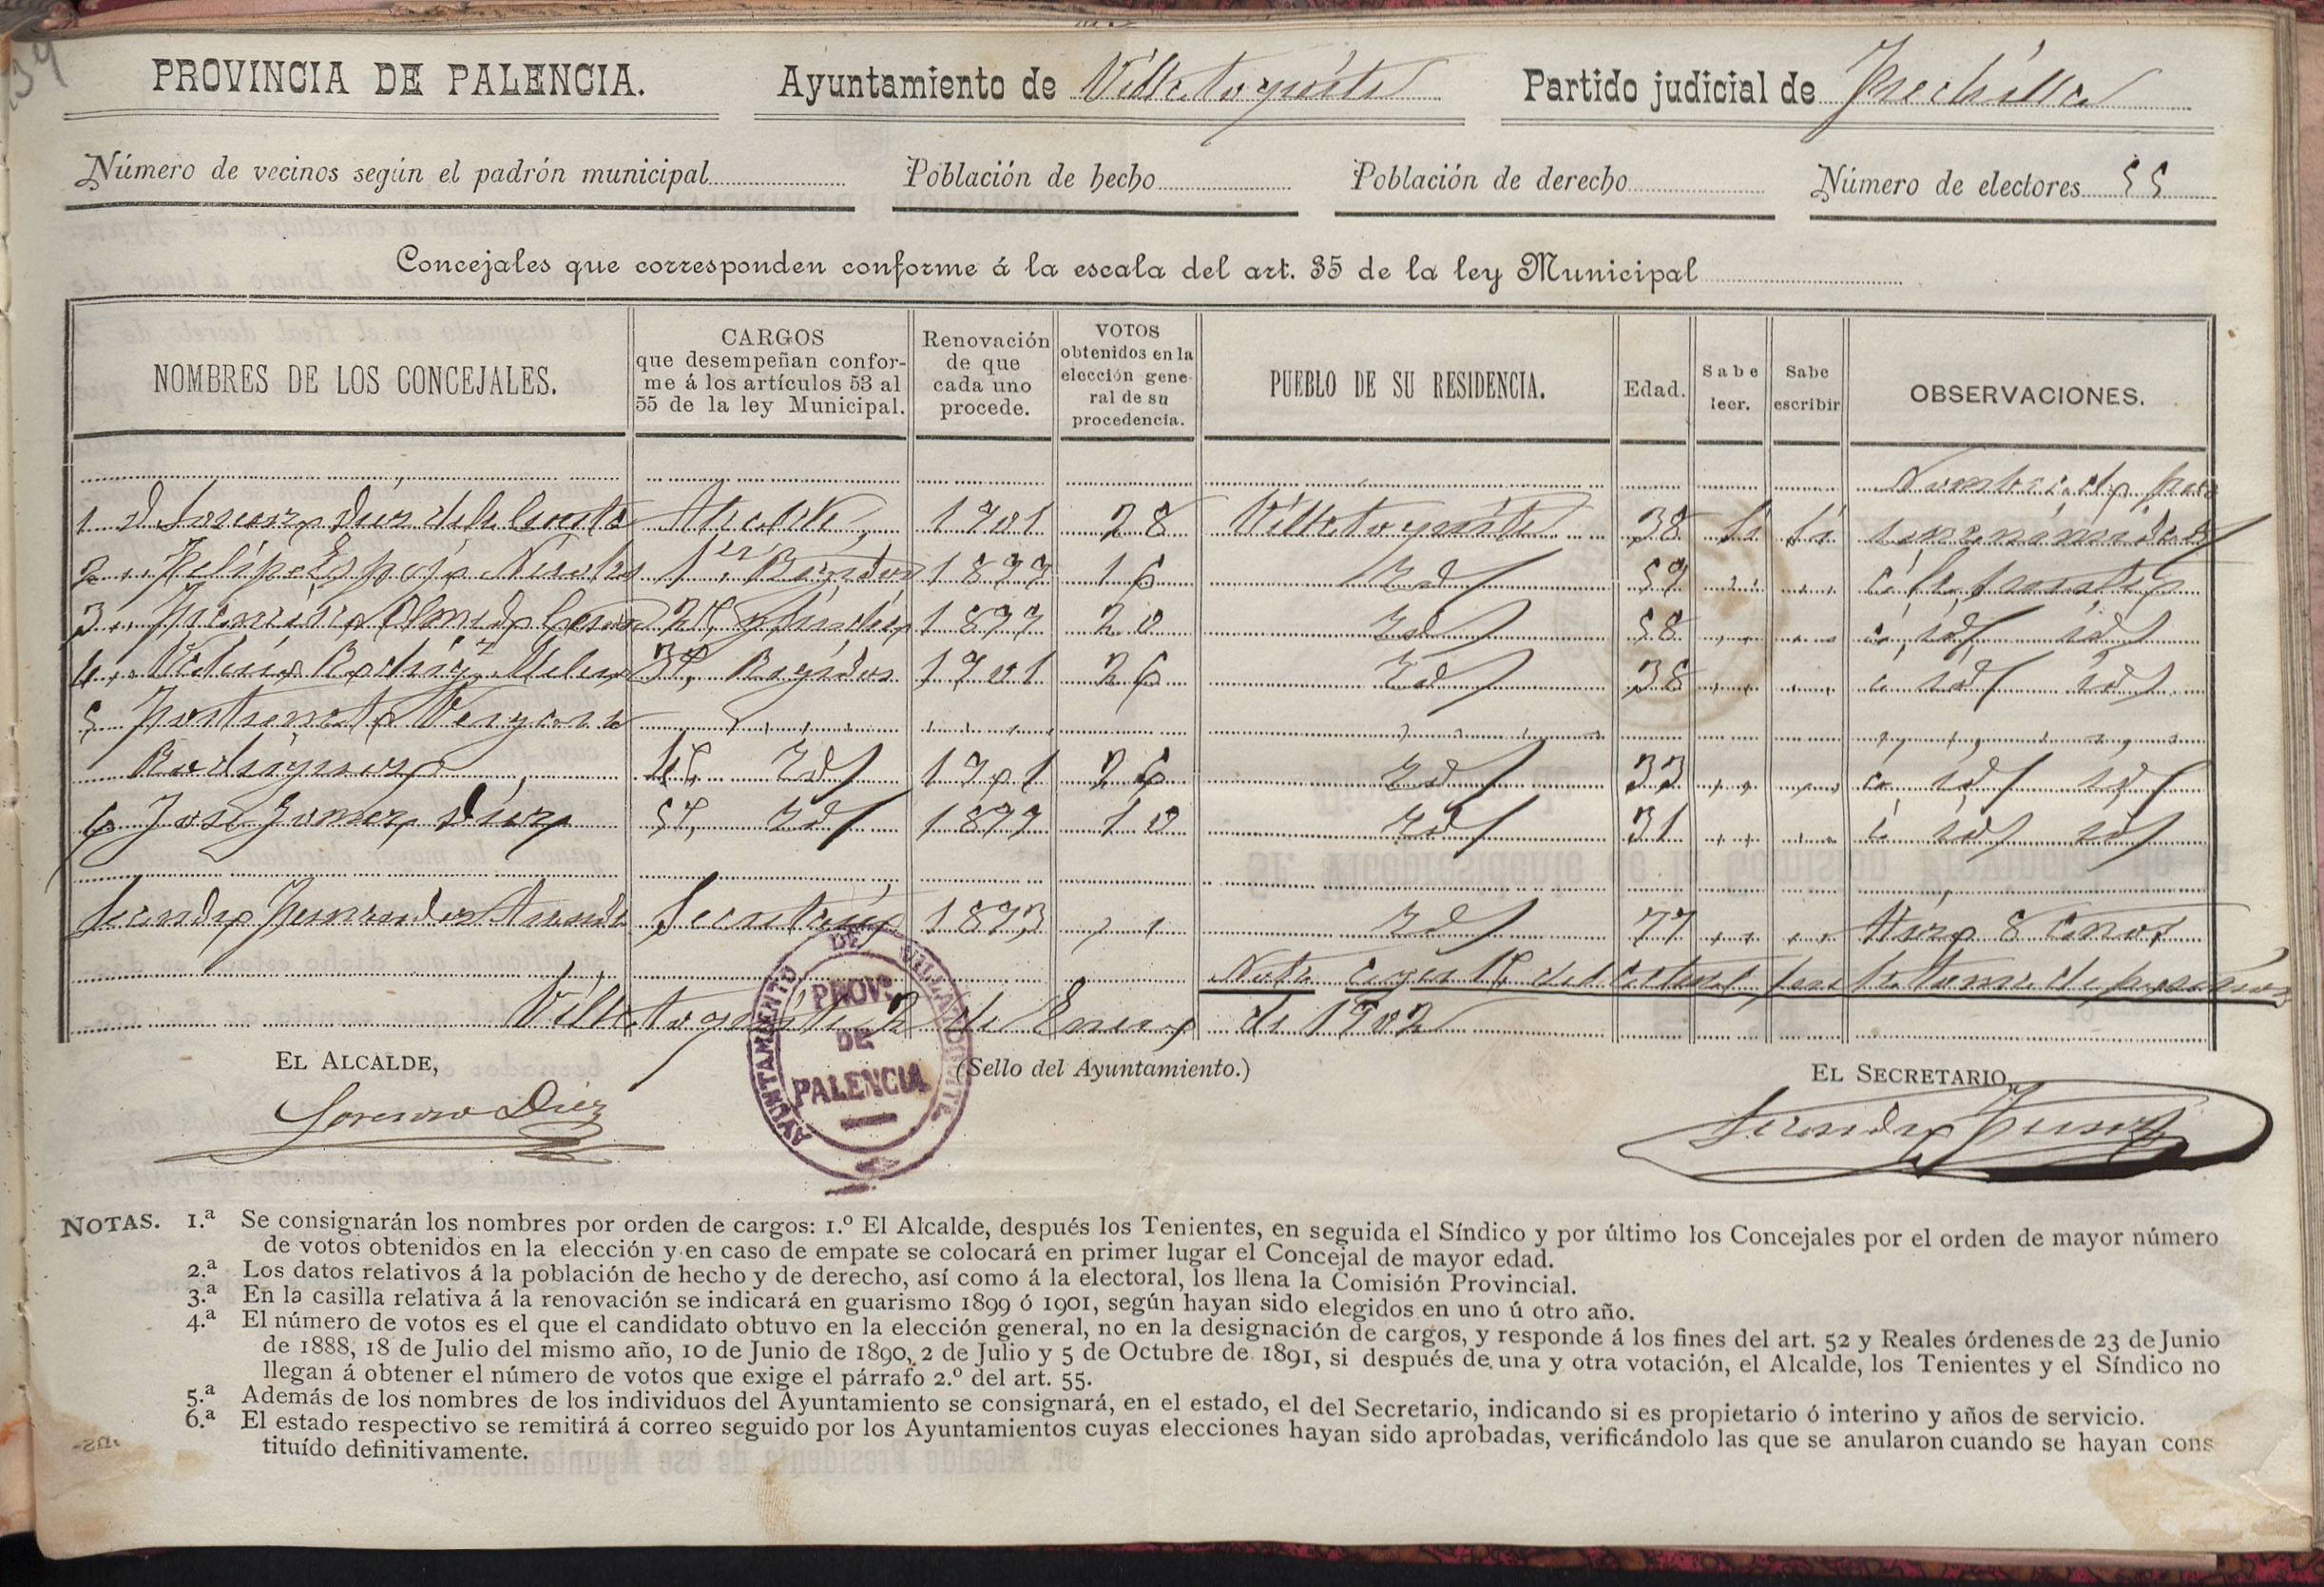 PROVINCIA DE PALENCIA. Ayuntamiento de Villatoquite Partido judicial de Frechilla
Número de vecinos según el padrón municipal Población de hecho Población de derecho Número de electores 55
Concejales que corresponden conforme á la escala del art. 35 de la ley Municipal
NOMBRES DE LOS CONCEJALES. CARGOS que desempeñan conforme á los artículos 53 al 55 de la ley Municipal. Renovación de que cada uno procede. VOTOS obtenidos en la elección general de su procedencia. PUEBLO DE SU RESIDENCIA. Edad. Sabe leer. Sabe escribir OBSERVACIONES.
Nombrado por
1 D Lorenzo Diez de la Cuesta Alcalde 1901 28 Villatoquite 38 si si unanimidad
2 Felipe Espejo Nicolas 1er Regidor 1899 16 Id 59
3 Olmedo 2º y Sindico 1899 20 Id 58 id id
4 Rodrigz 3º Regidor 1901 26 Id 38 id id
5 Fortunato Vergara
Rodriguez 4º Id 1901 26 Id 33 id id
6 José Gomez Diez 5º Id 1899 10 Id 31 id id
Secundo Fernandez Secretario 1893 Id 77 Hace 8 años
Nota
Villatoquite 2 de Enero de 1902
AYUNTAMIENTO DE VILLATOQUITE
PROVª DE PALENCIA
EL ALCALDE, (Sello del Ayuntamiento.) EL SECRETARIO,
Lorenzo Diez Secundo Fernz
NOTAS. 1.ª Se consignarán los nombres por orden de cargos: 1.º El Alcalde, después los Tenientes, en seguida el Síndico y por último los Concejales por el orden de mayor número
de votos obtenidos en la elección y en caso de empate se colocará en primer lugar el Concejal de mayor edad.
2.ª Los datos relativos á la población de hecho y de derecho, así como á la electoral, los llena la Comisión Provincial.
3.ª En la casilla relativa á la renovación se indicará en guarismo 1899 ó 1901, según hayan sido elegidos en uno ú otro año.
4.ª El número de votos es el que el candidato obtuvo en la elección general, no en la designación de cargos, y responde á los fines del art. 52 y Reales órdenes de 23 de Junio
de 1888, 18 de Julio del mismo año, 10 de Junio de 1890, 2 de Julio y 5 de Octubre de 1891, si después de una y otra votación, el Alcalde, los Tenientes y el Síndico no
llegan á obtener el número de votos que exige el párrafo 2.º del art. 55.
5.ª Además de los nombres de los individuos del Ayuntamiento se consignará, en el estado, el del Secretario, indicando si es propietario ó interino y años de servicio.
6.ª El estado respectivo se remitirá á correo seguido por los Ayuntamientos cuyas elecciones hayan sido aprobadas, verificándolo las que se anularon cuando se hayan cons
tituído definitivamente.